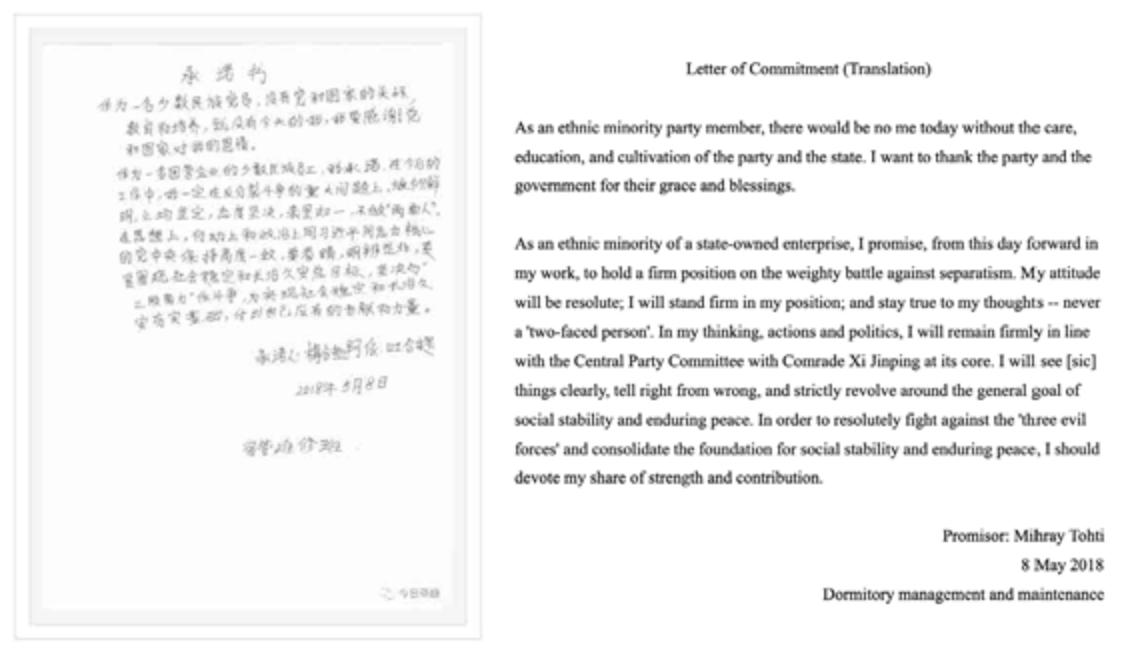 承诺书
作为一名少数民族党员，没有党和国家的关怀，
教育和培养，就没有今天的我，非常感谢党
和国家对我的恩情。
作为一名国营企业的少数民族员工，我承诺，在今后的
工作中，我一定在反分裂斗争的重大问题上，旗帜鲜
明，立场坚定，态度坚决，表里如一，不做"两面人"。
在思想上，行动上和政治上同习近平同志为核心
的党中央保持高度一致，
实现社会稳定和长治久安总目标，坚决与"
三股势力"作斗争，为实现社会稳定和长治久
安夯实基础，
承诺人：
2018年5月8日
今日头条
Letter of Commitment (Translation)
As an ethnic minority party member, there would be no me today without the care,
education, and cultivation of the party and the state. I want to thank the party and the
government for their grace and blessings.
As an ethnic minority of a state-owned enterprise, I promise, from this day forward in
my work, to hold a firm position on the weighty battle against separatism. My attitude
will be resolute; I will stand firm in my position; and stay true to my thoughts -- never
a 'two-faced person'. In my thinking, actions and politics, I will remain firmly in line
with the Central Party Committee with Comrade Xi Jinping at its core. I will see [sic]
things clearly, tell right from wrong, and strictly revolve around the general goal of
social stability and enduring peace. In order to resolutely fight against the 'three evil
forces' and consolidate the foundation for social stability and enduring peace, I should
devote my share of strength and contribution.
Promisor: Mihray Tohti
8 May 2018
Dormitory management and maintenance